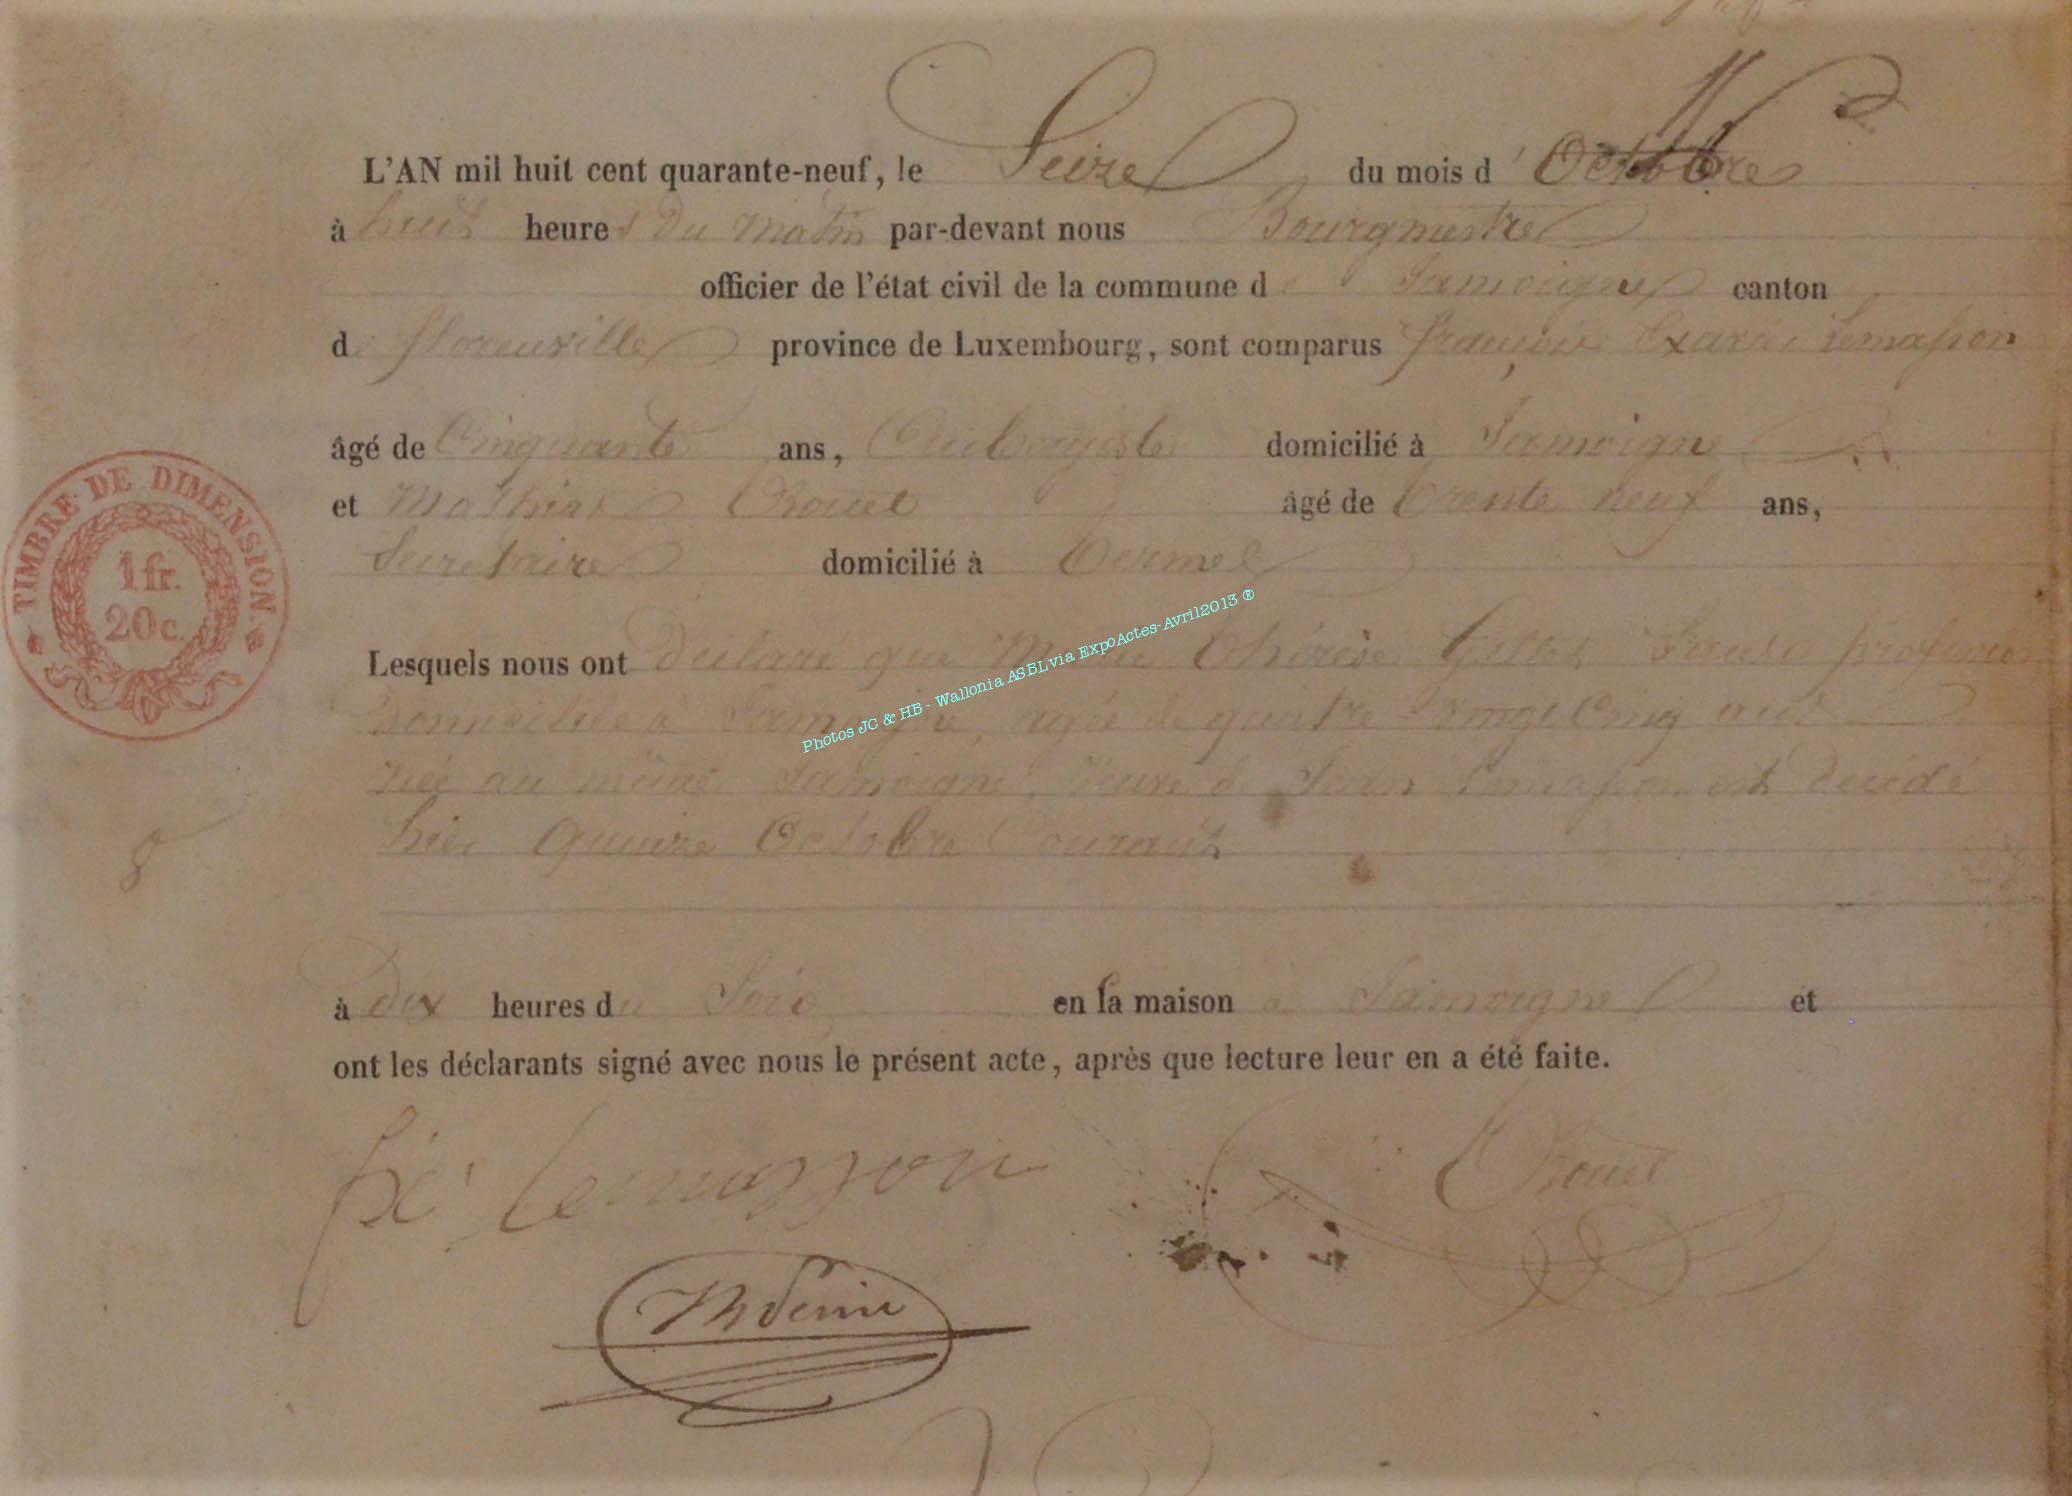 L'AN mil huit cent quarante-neuf, le Seize du mois d'Octobre
à huit heures du matin par-devant nous Bourgmestre
officier de l'état civil de la commune de Jamoigne canton
de florenville province de Luxembourg, sont comparus françois Exavier Lemasson
âgé de Cinquante ans, Aubergiste domicilié à Jamoigne
et Mathias âgé de trente neuf ans,
Secretaire domicilié à Termes
TIMBRE DE DIMENSION.
1 fr.
20 c.
Lesquels nous ont declaré que Marie thérèse Sans profession
domiciliée à Jamoigne, agée de quatre vingt Cinq ans
née au même Jamoigne, Veuve de Jean Lemasson est décédé
hier Quinze Octobre Courant
à dix heures du Soir en sa maison à Jamoigne et
ont les déclarants signé avec nous le présent acte, après que lecture leur en a été faite.
fx Lemasson
Photos JC & HB - Wallonia ASBL via ExpoActes-Avril2013 ®